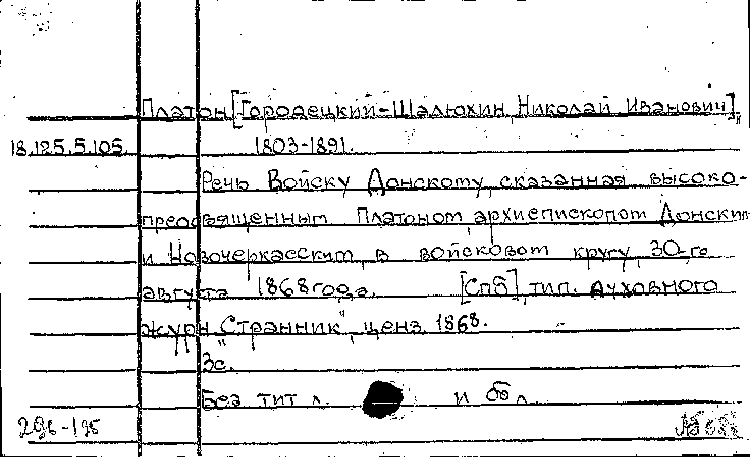 Платон [Городецкий-Шалюхин, Николай Иванович],
18.125.5.105. 1803-1891.
Речь Войску Донскому, сказанная высоко-
преосвященным Платоном, архиепископом Донским
и Новочеркасским, в войсковом кругу, 30-го
августа 1868 года. [Спб], тип. духовного
журн. "Странник", ценз. 1868.
3с.
Без тит л. и обл.
296-195